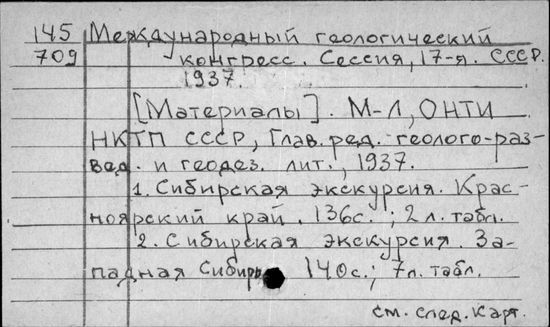 145 Международный геологический
709 конгресс. Сессия, 17-я. СССР.
1937.
[Материалы]. М-Л, ОНТИ
НКТП СССР, Глав. ред. геолого-раз-
вед. и геодез. лит., 1937.
1. Сибирская экскурсия. Крас-
ноярский край. 136с.; 2 л. табл.
2. Сибирская экскурсия. За-
падная Сибирь 140с.; 7л. табл.
см. след. карт.